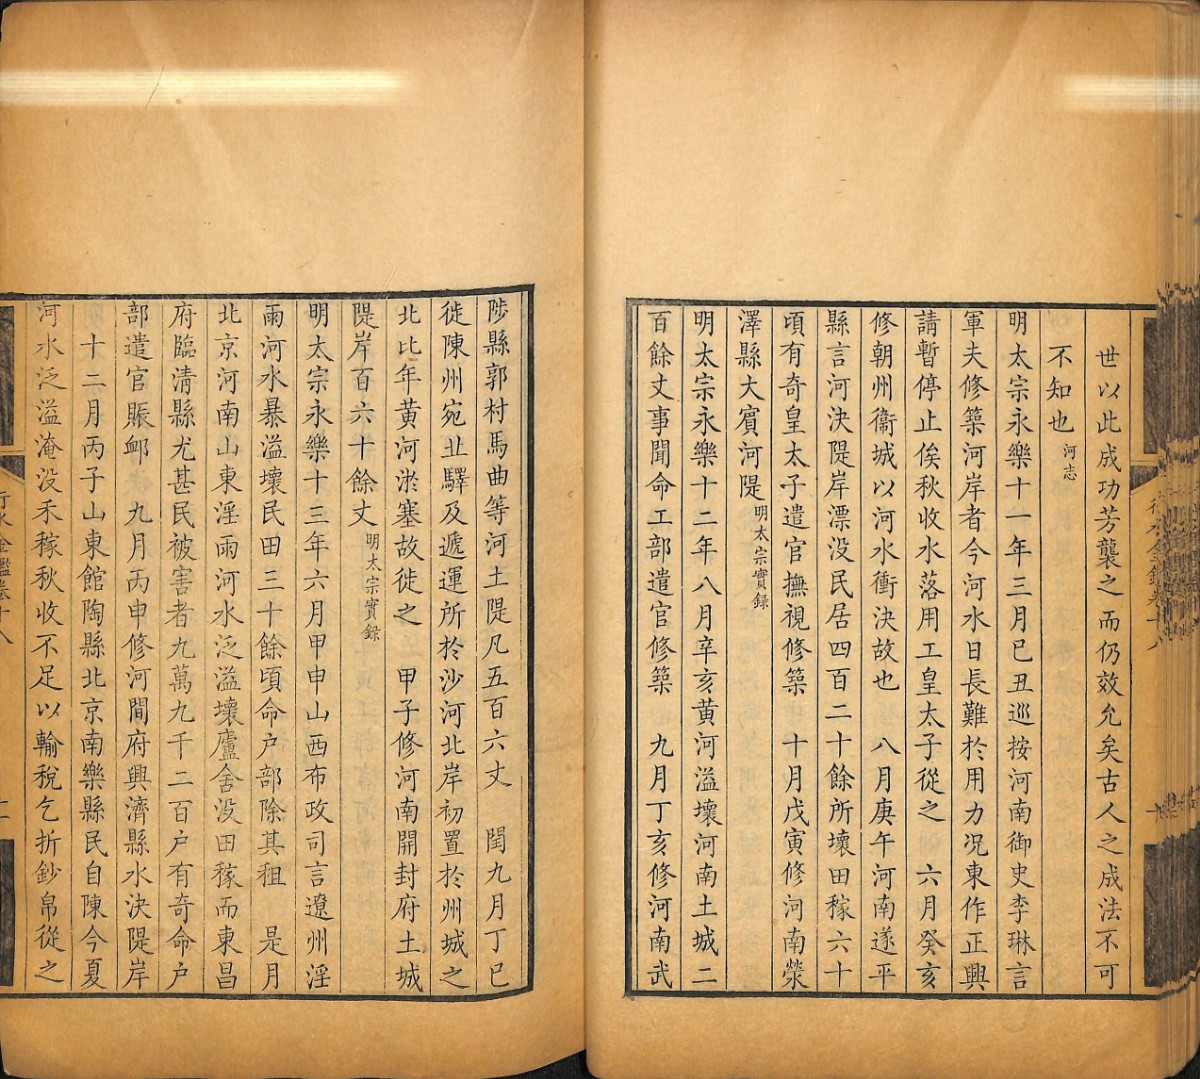 世以此成功芳襲之而仍效允矣古人之成法不可
不知也河志
明太宗永樂十一年三月己丑巡按河南御史李琳言
軍夫修築河岸者今河水日長難於用力况東作正興
請暫停止俟秋收水落用工皇太子從之 六月癸亥
修朝州衞城以河水衝決故也 八月庚午河南遂平
縣言河決隄岸漂没民居四百二十餘所壞田稼六十
頃有奇皇太子遣官撫視修築 十月戊寅修河南滎
澤縣大賓河隄明太宗實録
明太宗永樂十二年八月辛亥黄河溢壞河南土城二
百餘丈事聞命工部遣官修築 九月丁亥修河南武
陟縣郭村馬曲等河土隄凡五百六丈 閏九月丁巳
徙陳州宛丘驛及遞運所於沙河北岸初置於州城之
北比年黄河淤塞故徙之 甲子修河南開封府土城
隄岸百六十餘丈明太宗實録
明太宗永樂十三年六月甲申山西布政司言遼州淫
雨河水暴溢壞民田三十餘頃命户部除其租 是月
北京河南山東淫雨河水泛溢壞廬舍没田稼而東昌
府臨清縣尤甚民被害者九萬九千二百户有奇命户
部遣官賑卹 九月丙申修河間府興濟縣水決隄岸
十二月丙子山東館陶縣北京南樂縣民自陳今夏
河水泛溢淹没禾稼秋收不足以輸税乞折鈔帛從之
行水金鑑卷十八